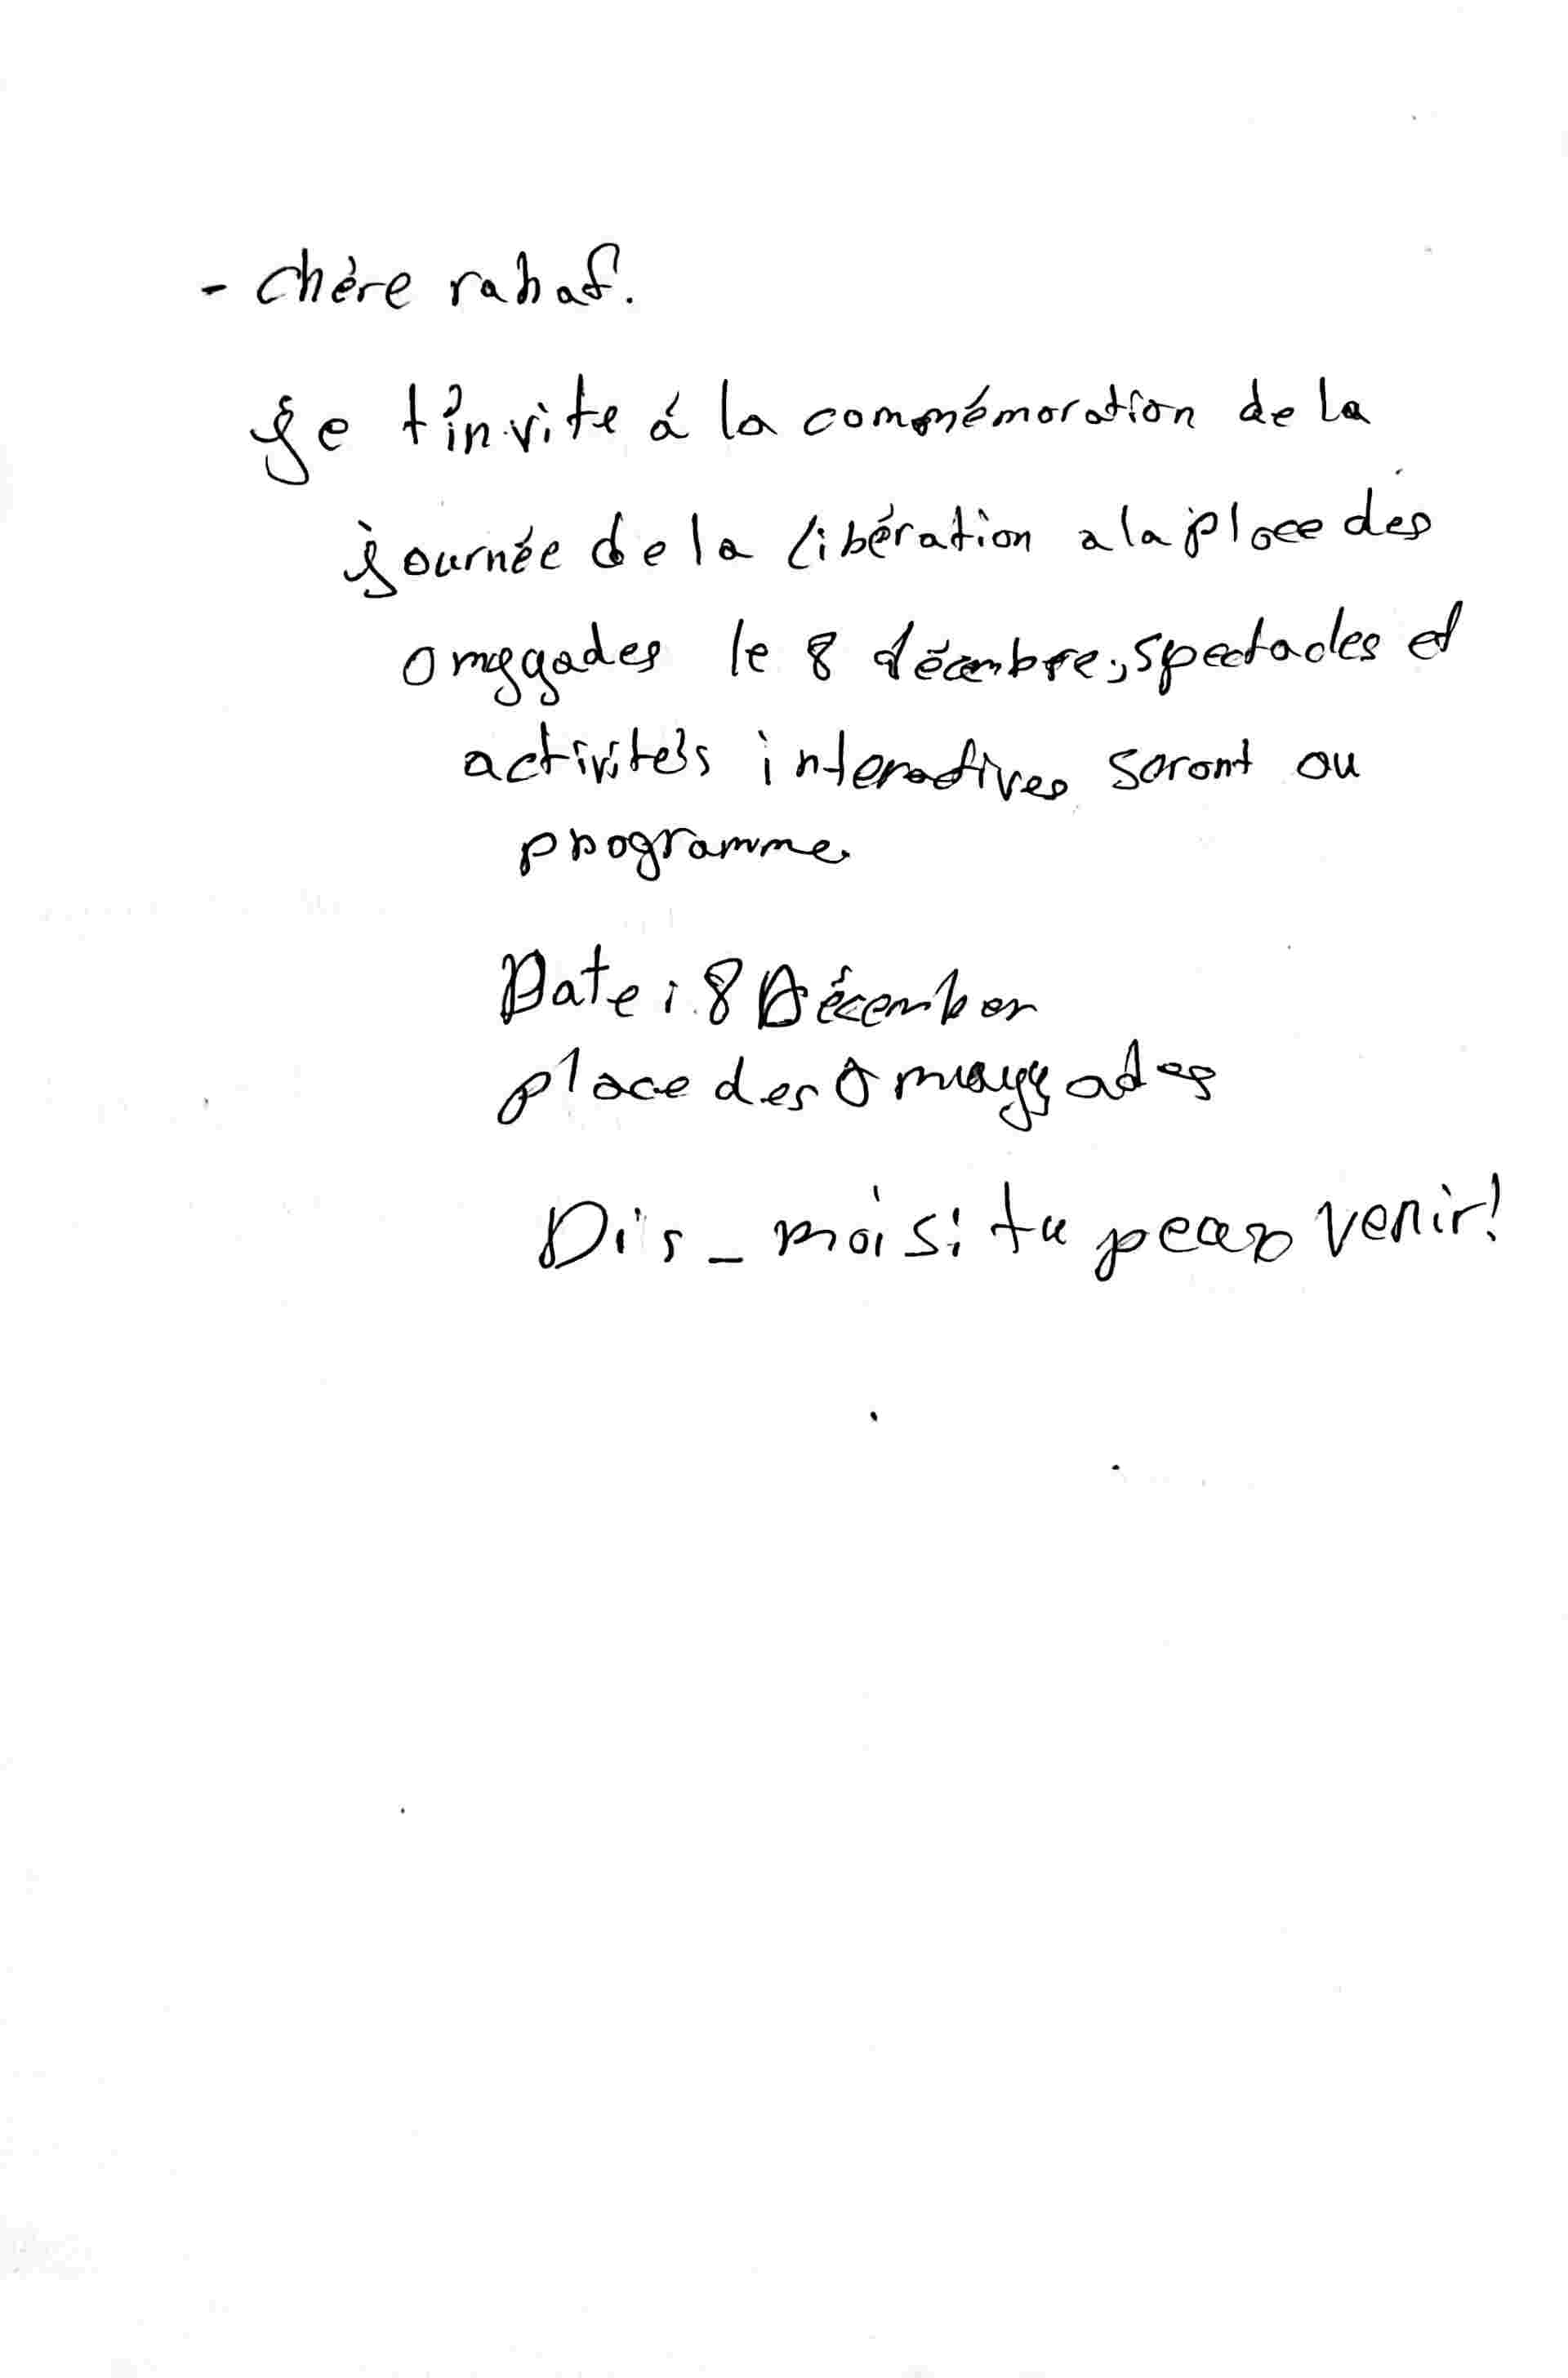 - Chère rahaf.
je t'invite á la commémoration de la
journée de la libération a la place des
omyyades le 8 décembre, spectacles et
activités interactives seront au
programme.
Date : 8 Décember
place des Omayyades
Dis - moi si tu peux venir!